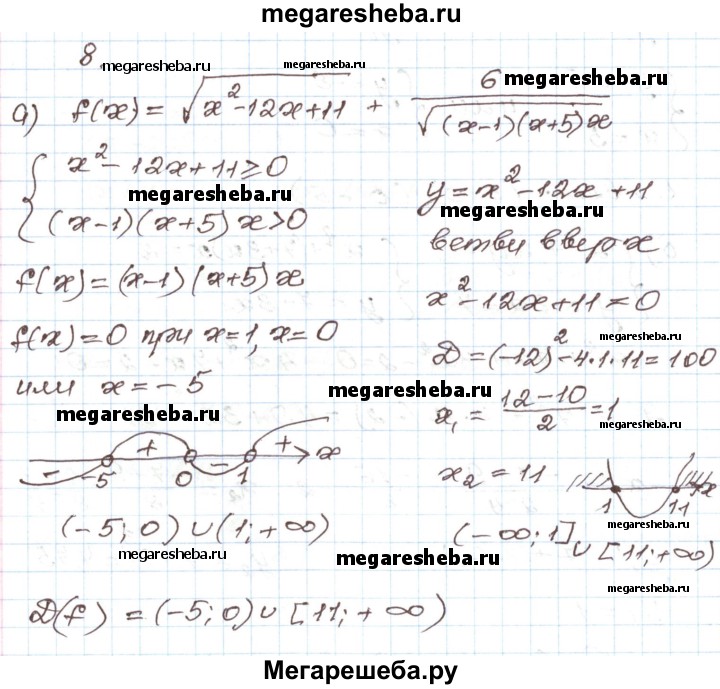 megaresheba.ru
8
megaresheba.ru
megaresheba.ru
а) f(x) = √(x²-12x+11) + 6/√((x-1)(x+5)x)
megaresheba.ru
{ x²-12x+11≥0
megaresheba.ru
(x-1)(x+5)x>0
y=x²-12x+11
megaresheba.ru
ветви вверх
f(x)=(x-1)(x+5)x
x²-12x+11=0
f(x)=0 при x=1, x=0
megaresheba.ru
D=(-12)²-4·1·11=100
или x=-5
megaresheba.ru
megaresheba.ru
x₁ = (12-10)/2 = 1
- + - + x
-5 0 1
x₂ = 11
x
1 11
megaresheba.ru
(-5;0)∪(1;+∞)
megaresheba.ru
(-∞;1]∪[11;+∞)
megaresheba.ru
megaresheba.ru
D(f) = (-5;0)∪[11;+∞)
Мегарешеба.ру